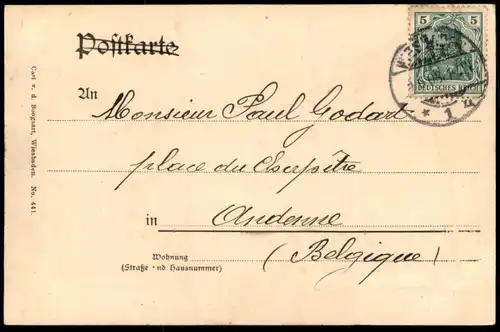 Postkarte
5 5
DEUTSCHES REICH
1
An Monsieur Paul Godart
place du
in Andenne
Wohnung
(Straße nd Hausnummer)
(Belgique)
Carl v. d. Boogaart, Wiesbaden. No. 441.